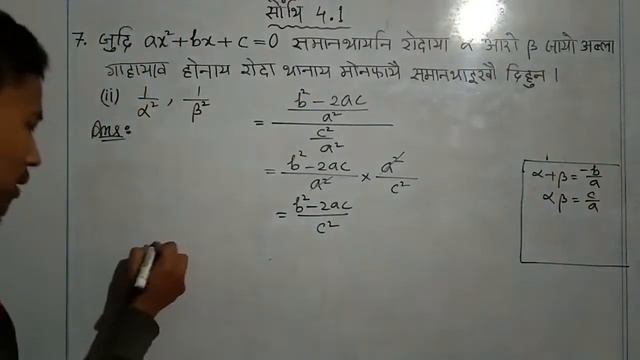 सोंथि 4.1
7. जुदि ax² + bx + c = 0 समानथायनि रोदाया α आरो β जायो अब्ला
गाहायाव होनाय रोदा थानाय मोनफायै समानथाइखौ दिहुन ।
(ii) 1/α² , 1/β²
Ans:
= ((b² - 2ac)/a²)/(c²/a²)
= (b² - 2ac)/a² × a²/c²
= (b² - 2ac)/c²
α + β = -b/a
αβ = c/a